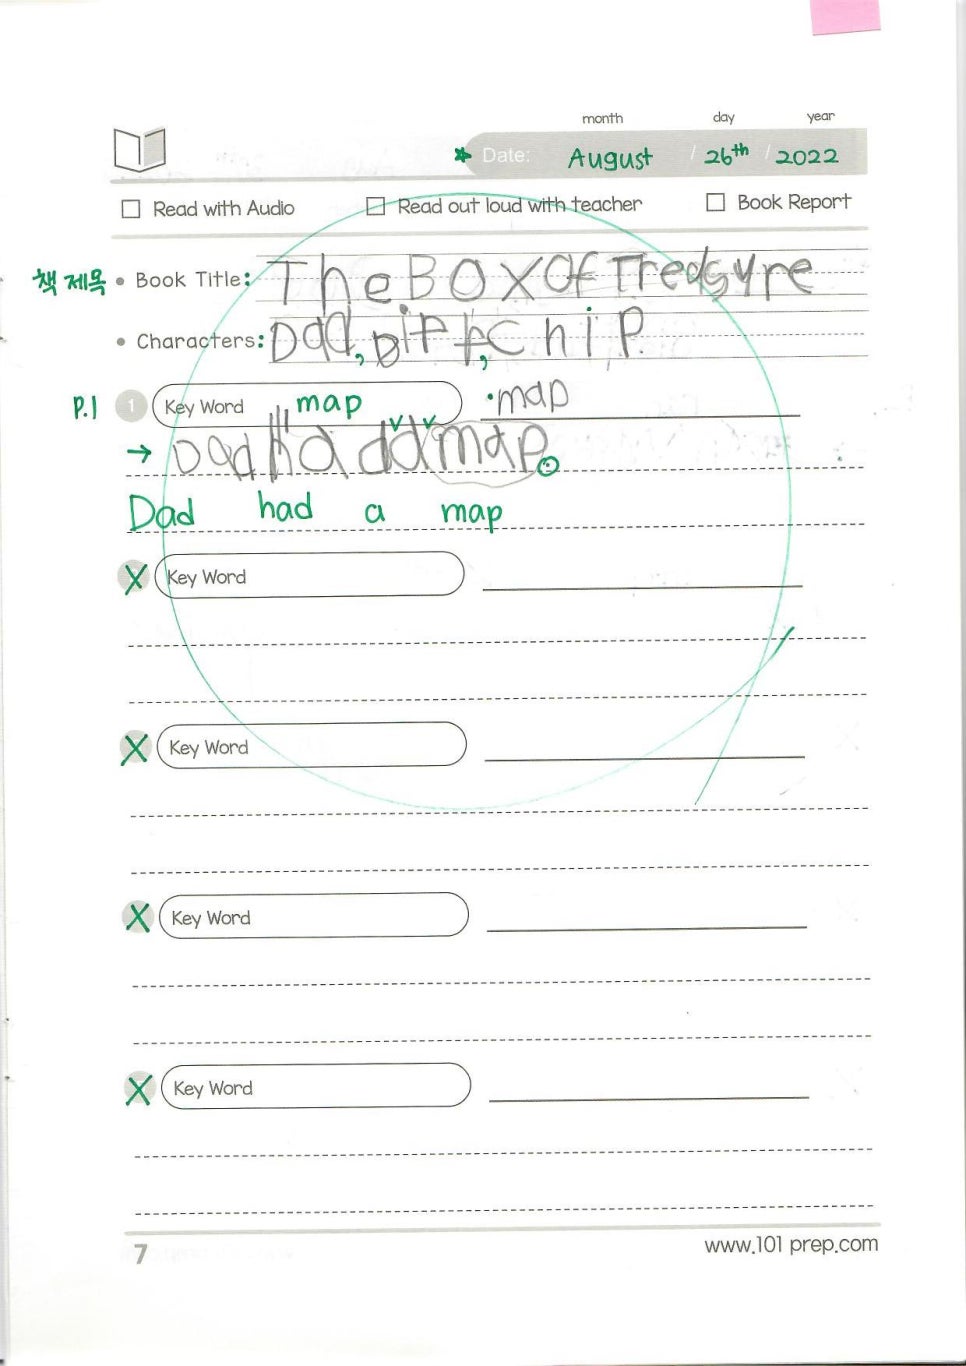 month day year
Date: August / 26th / 2022
Read with Audio Read out loud with teacher Book Report
책 제목 • Book Title: The Box Of Treasure
• Characters: Dad, Biff, Chip
P.1 1 Key Word map •map
→ Dad had a map.
Dad had a map
X Key Word
X Key Word
X Key Word
X Key Word
7 www.101prep.com